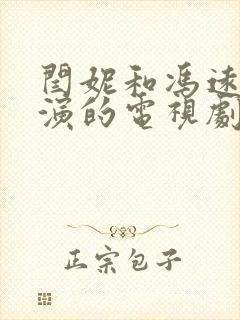 閆妮和馮遠
演的電視劇
正宗包子